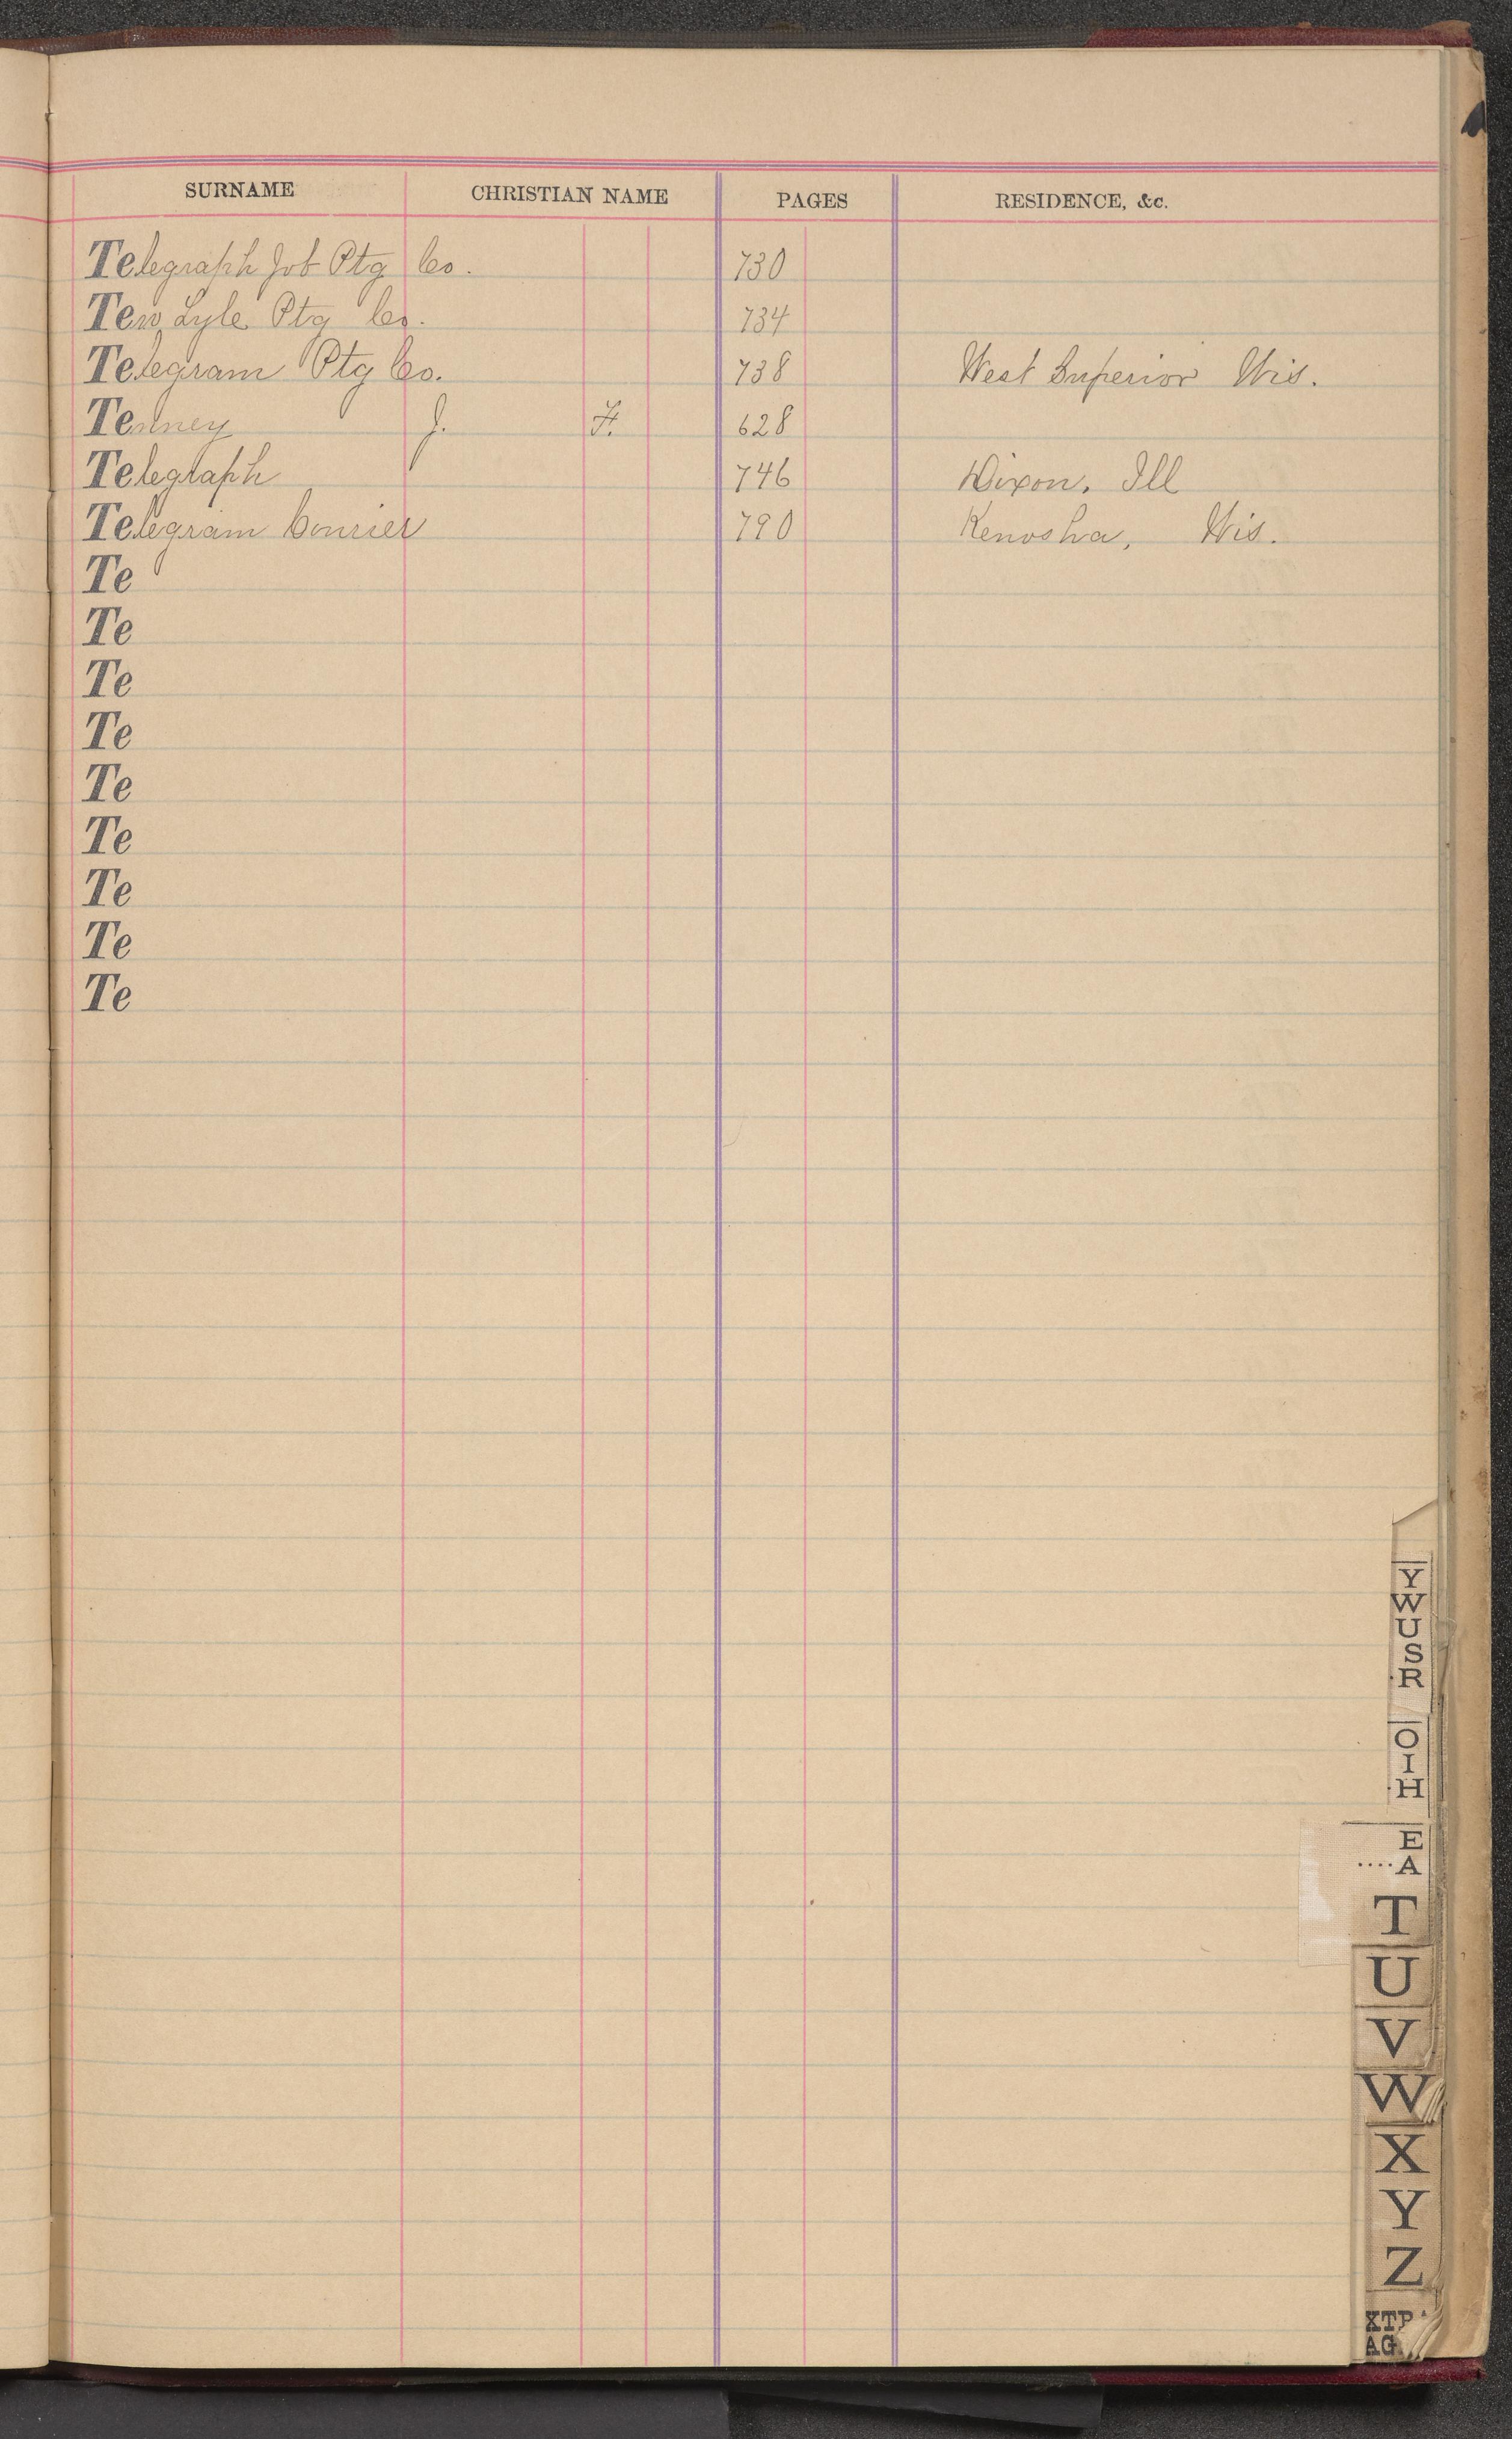 SURNAME CHRISTIAN NAME PAGES RESIDENCE, &c.
Telegraph Job Ptg Co. 730
Tew, Lyle Ptg Co. 734
Telegram Ptg Co. 738 West Superior Wis.
Tenney J. F. 628
Telegraph 746 Dixon, Ill
Telegram Courier 790 Kenosha, Wis.
Te
Te
Te
Te
Te
Te
Te
Te
Te
Y
W
U
S
R
O
I
H
E
....A
T
U
V
W
X
Y
Z
XTRA
AG